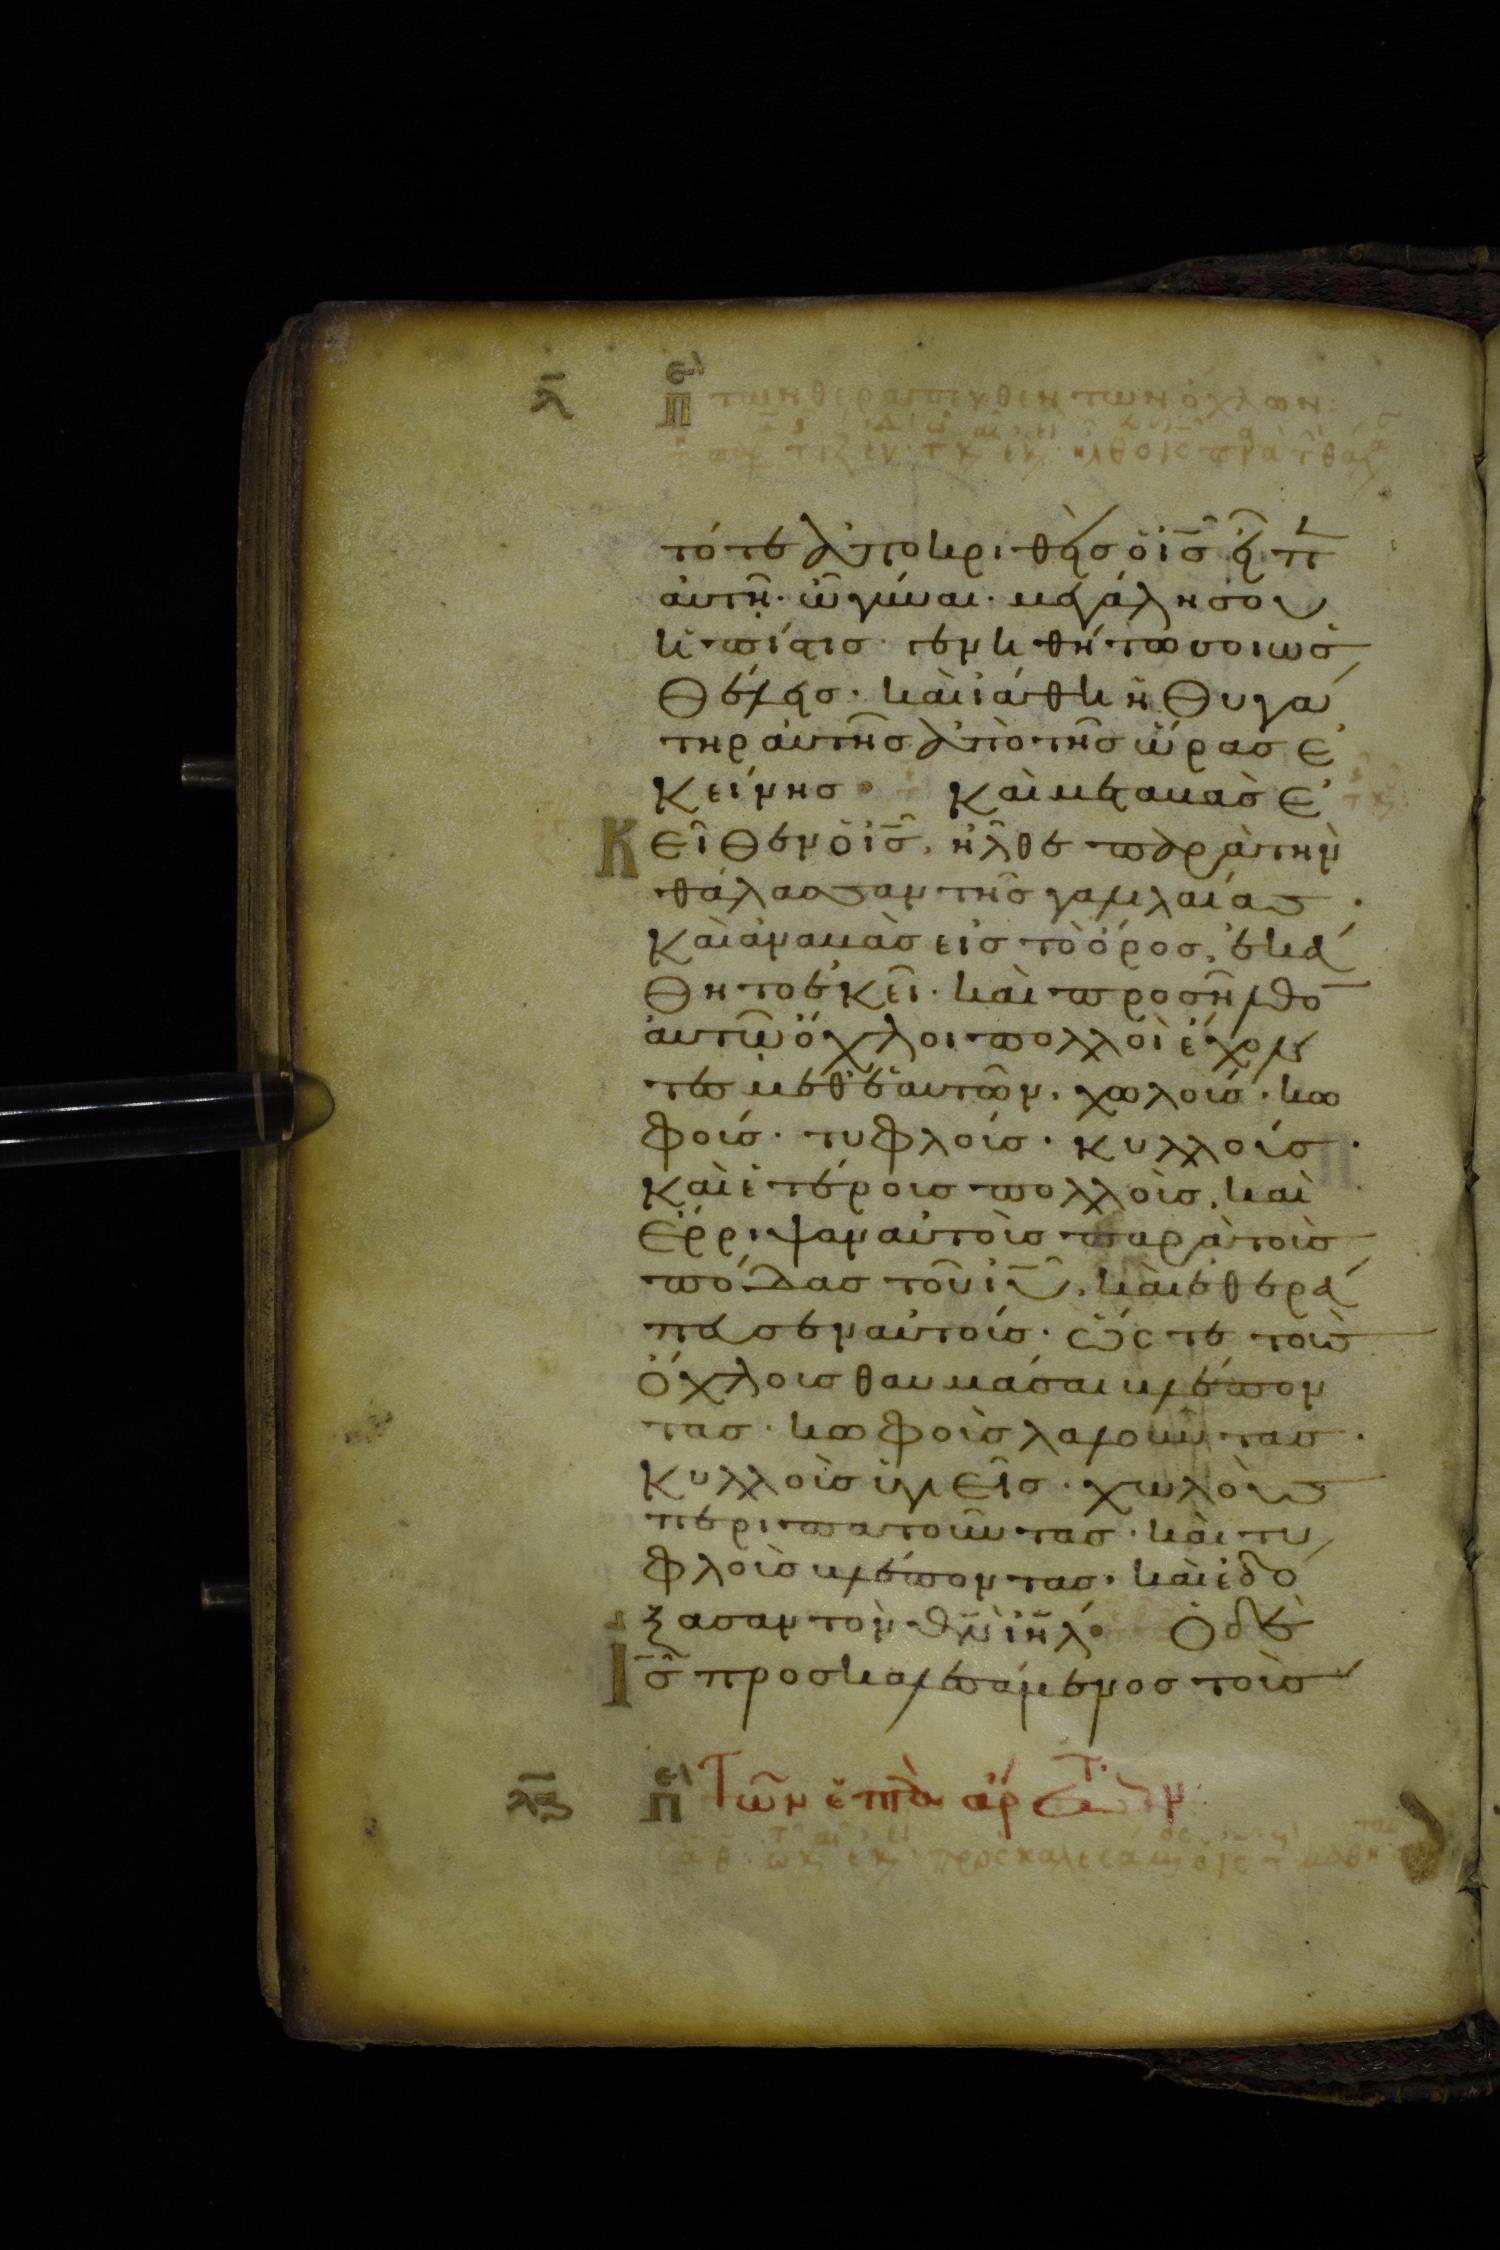 λ Π τῶν θεραπευθέντων ὄχλων:
τότε ἀποκριθεὶς ὁ ις εἶπ
αὐτῆ· ὦ γύναι· μεγάλη σου
ἡ πίστις· γενηθήτω σοι ὡς
θέλεις· καὶ ἰάθη ἡ θυγά
τηρ αὐτῆς ἀπὸ τῆς ὥρας ἐ
κείνης· Καὶ μεταβὰς ἐ
κεῖθεν ὁ ις, ἦλθε παρὰ τὴν
θάλασσαν τῆς γαλιλαίας·
Καὶ ἀναβὰς εἰς τὸ ὄρος, ἐκά
θητο ἐκεῖ· καὶ προσῆλθο
αὐτῶ ὄχλοι πολλοὶ ἔχον
τες μεθ' ἑαυτῶν, χωλούς· κω
φούς· τυφλούς· κυλλούς·
Καὶ ἑτέρους πολλοὺς, καὶ
ἔρριψαν αὐτοὺς παρὰ τοὺς
πόδας τοῦ ιυ, καὶ ἐθερά
πευσεν αὐτούς· ὥστε τοὺς
ὄχλους θαυμάσαι βλέπον
τας· κωφοὺς λαλοῦντας·
Κυλλοὺς ὑγιεῖς· χωλοὺς
περιπατοῦντας· καὶ τυ
φλοὺς βλέποντας· καὶ ἐδό
ξασαν τὸν θν ιηλ· Ὁ δὲ
Ις προσκαλεσάμενος τοὺς
λα Π Τῶν ἑπτὰ ἄρτων